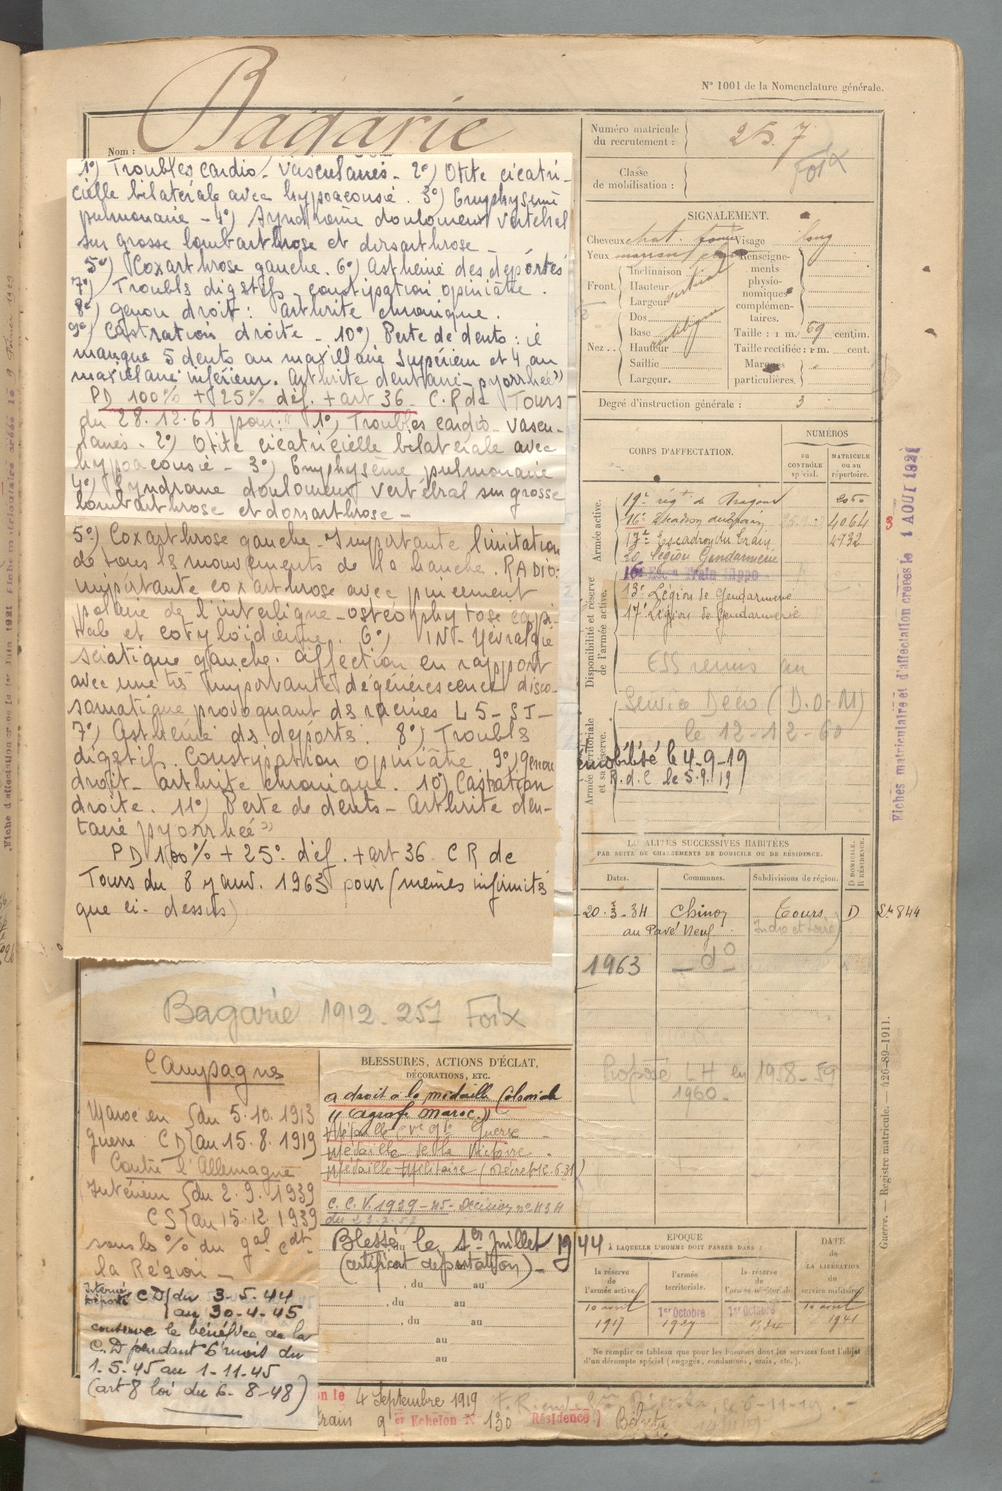 N° 1001 de la Nomenclature générale.
Bagarie
Nom :
1°) Troubles cardio-vasculaires - 2°) Otite cicatri-
cielle bilatérale avec hypoacousie. 3°) Emphysème
pulmonaire - 4°) Syndrome douloureux vertébral
sur grosse lombarthrose et dorsarthrose -
5°) Coxarthrose gauche. 6°) Asthénie des déportés
7°) Troubles digestifs - constipation opiniâtre.
8°) genou droit : arthrite chronique.
9°) Castration droite - 10°) Perte de dents : il
manque 5 dents au maxillaire supérieur et 4 au
maxillaire inférieur. Arthrite dentaire - pyorrhée
PD 100% + 25% déf. + art 36. C.R de Tours
du 28.12.61 pour : 1°) Troubles cardio-vascu-
laires - 2°) Otite cicatricielle bilatérale avec
hypoacousie - 3°) Emphysème pulmonaire
4°) Syndrome douloureux vertébral sur grosse
lombarthrose et dorsarthrose -
5°) Coxarthrose gauche - Importante limitation
de tous les mouvements de la hanche. RADIO :
importante coxarthrose avec pincement
polaire de l'interligne - ostéophytose capi-
tale et cotyloïdienne. 6°) INI - Névralgie
sciatique gauche. affection en rapport
avec une très importante dégénérescence disco-
somatique provoquant des racines L5-S1 -
7°) Asthénie des déportés. 8°) Troubles
digestifs. Constipation opiniâtre 9°) genou
droit - arthrite chronique. 10°) Castration
droite. 11°) Perte de dents - Arthrite den-
taire pyorrhée
PD 100% + 25° déf. + art 36 CR de
Tours du 8 janv. 1963 pour (mêmes infirmités
que ci-dessus)
Bagarie 1912 - 257 Foix
Campagnes
Maroc en (du 5.10.1913
guerre CD (au 15.8.1919
Contre l'Allemagne
Intérieur (du 2.9.1939
CS (au 15.12.1939
sous les % du gal cdt
la Région -
Interné Déporté CD (du 3-5-44
au 30-4-45
conserve le bénéfice de la
C.D pendant 6 mois du
1-5-45 au 1-11-45
(art 8 loi du 6-8-48)
BLESSURES, ACTIONS D'ÉCLAT,
DÉCORATIONS, ETC.
a droit à la médaille Coloniale
"agrafe Maroc"
Médaille Cve Gde Guerre
Médaille de la Victoire
Médaille Militaire
C.C.V. 1939-45 - Décision n° 434
Blessé le 1er juillet 1944
(certificat déportation) -
, du au
, du au
, du au
au
au
Numéro matricule
du recrutement : 257
Foix
Classe
de mobilisation :
SIGNALEMENT.
Cheveux chat. foncé Visage long
Yeux marrons Renseigne-
ments
physio-
nomiques
complémen-
taires.
Front. Inclinaison
Hauteur
Largeur
verticale
Nez .. Dos
Base
Hauteur
Saillie
Largeur.
Taille : 1 m. 69 centim.
Taille rectifiée : 1 m. cent.
Marques
particulières.
Degré d'instruction générale : 3
CORPS D'AFFECTATION.
NUMÉROS
au
CONTRÔLE
spécial.
MATRICULE
ou au
répertoire.
Armée active.
19e régt de Dragons
16e Escadron du Train 4064
17e Escadron du Train 4732
20 Légion Gendarmerie
Disponibilité et réserve
de l'armée active.
16e Esc. Train Hippo
13e Légion de Gendarmerie
17e Légion de Gendarmerie
ESS remis au
Service Déco (D.O.M)
le 12-12-60
Armée territoriale
et sa réserve.
démobilisé le 4-9-19
R.d.C le 5.9.19
LOCALITÉS SUCCESSIVES HABITÉES
PAR SUITE DE CHANGEMENTS DE DOMICILE OU DE RÉSIDENCE.
Dates. Communes. Subdivisions de région. D. DOMICILE. R. RÉSIDENCE.
20-3-34 Chinon Tours D
au Pavé Neuf Indre et Loire
1963 - do -
Proposé LH en 1958-59
1960 -
ÉPOQUE
À LAQUELLE L'HOMME DOIT PASSER DANS :
DATE
de
LA LIBÉRATION
du
service militaire.
la réserve
de
l'armée active.
l'armée
territoriale.
la réserve
de
l'armée territoriale.
1er Octobre 1er Octobre
1917 1927 1934 1941
Ne remplir ce tableau que pour les hommes dont les services font l'objet
d'un décompte spécial (engagés, condamnés, omis, etc.).
on le 4 Septembre 1919
Train 9 er Echelon N° 130 Résidence
Fiches matriculaire et d'affectation créées le 1 AOUT 1921
Guerre. — Registre matricule. — 426-89-1911.